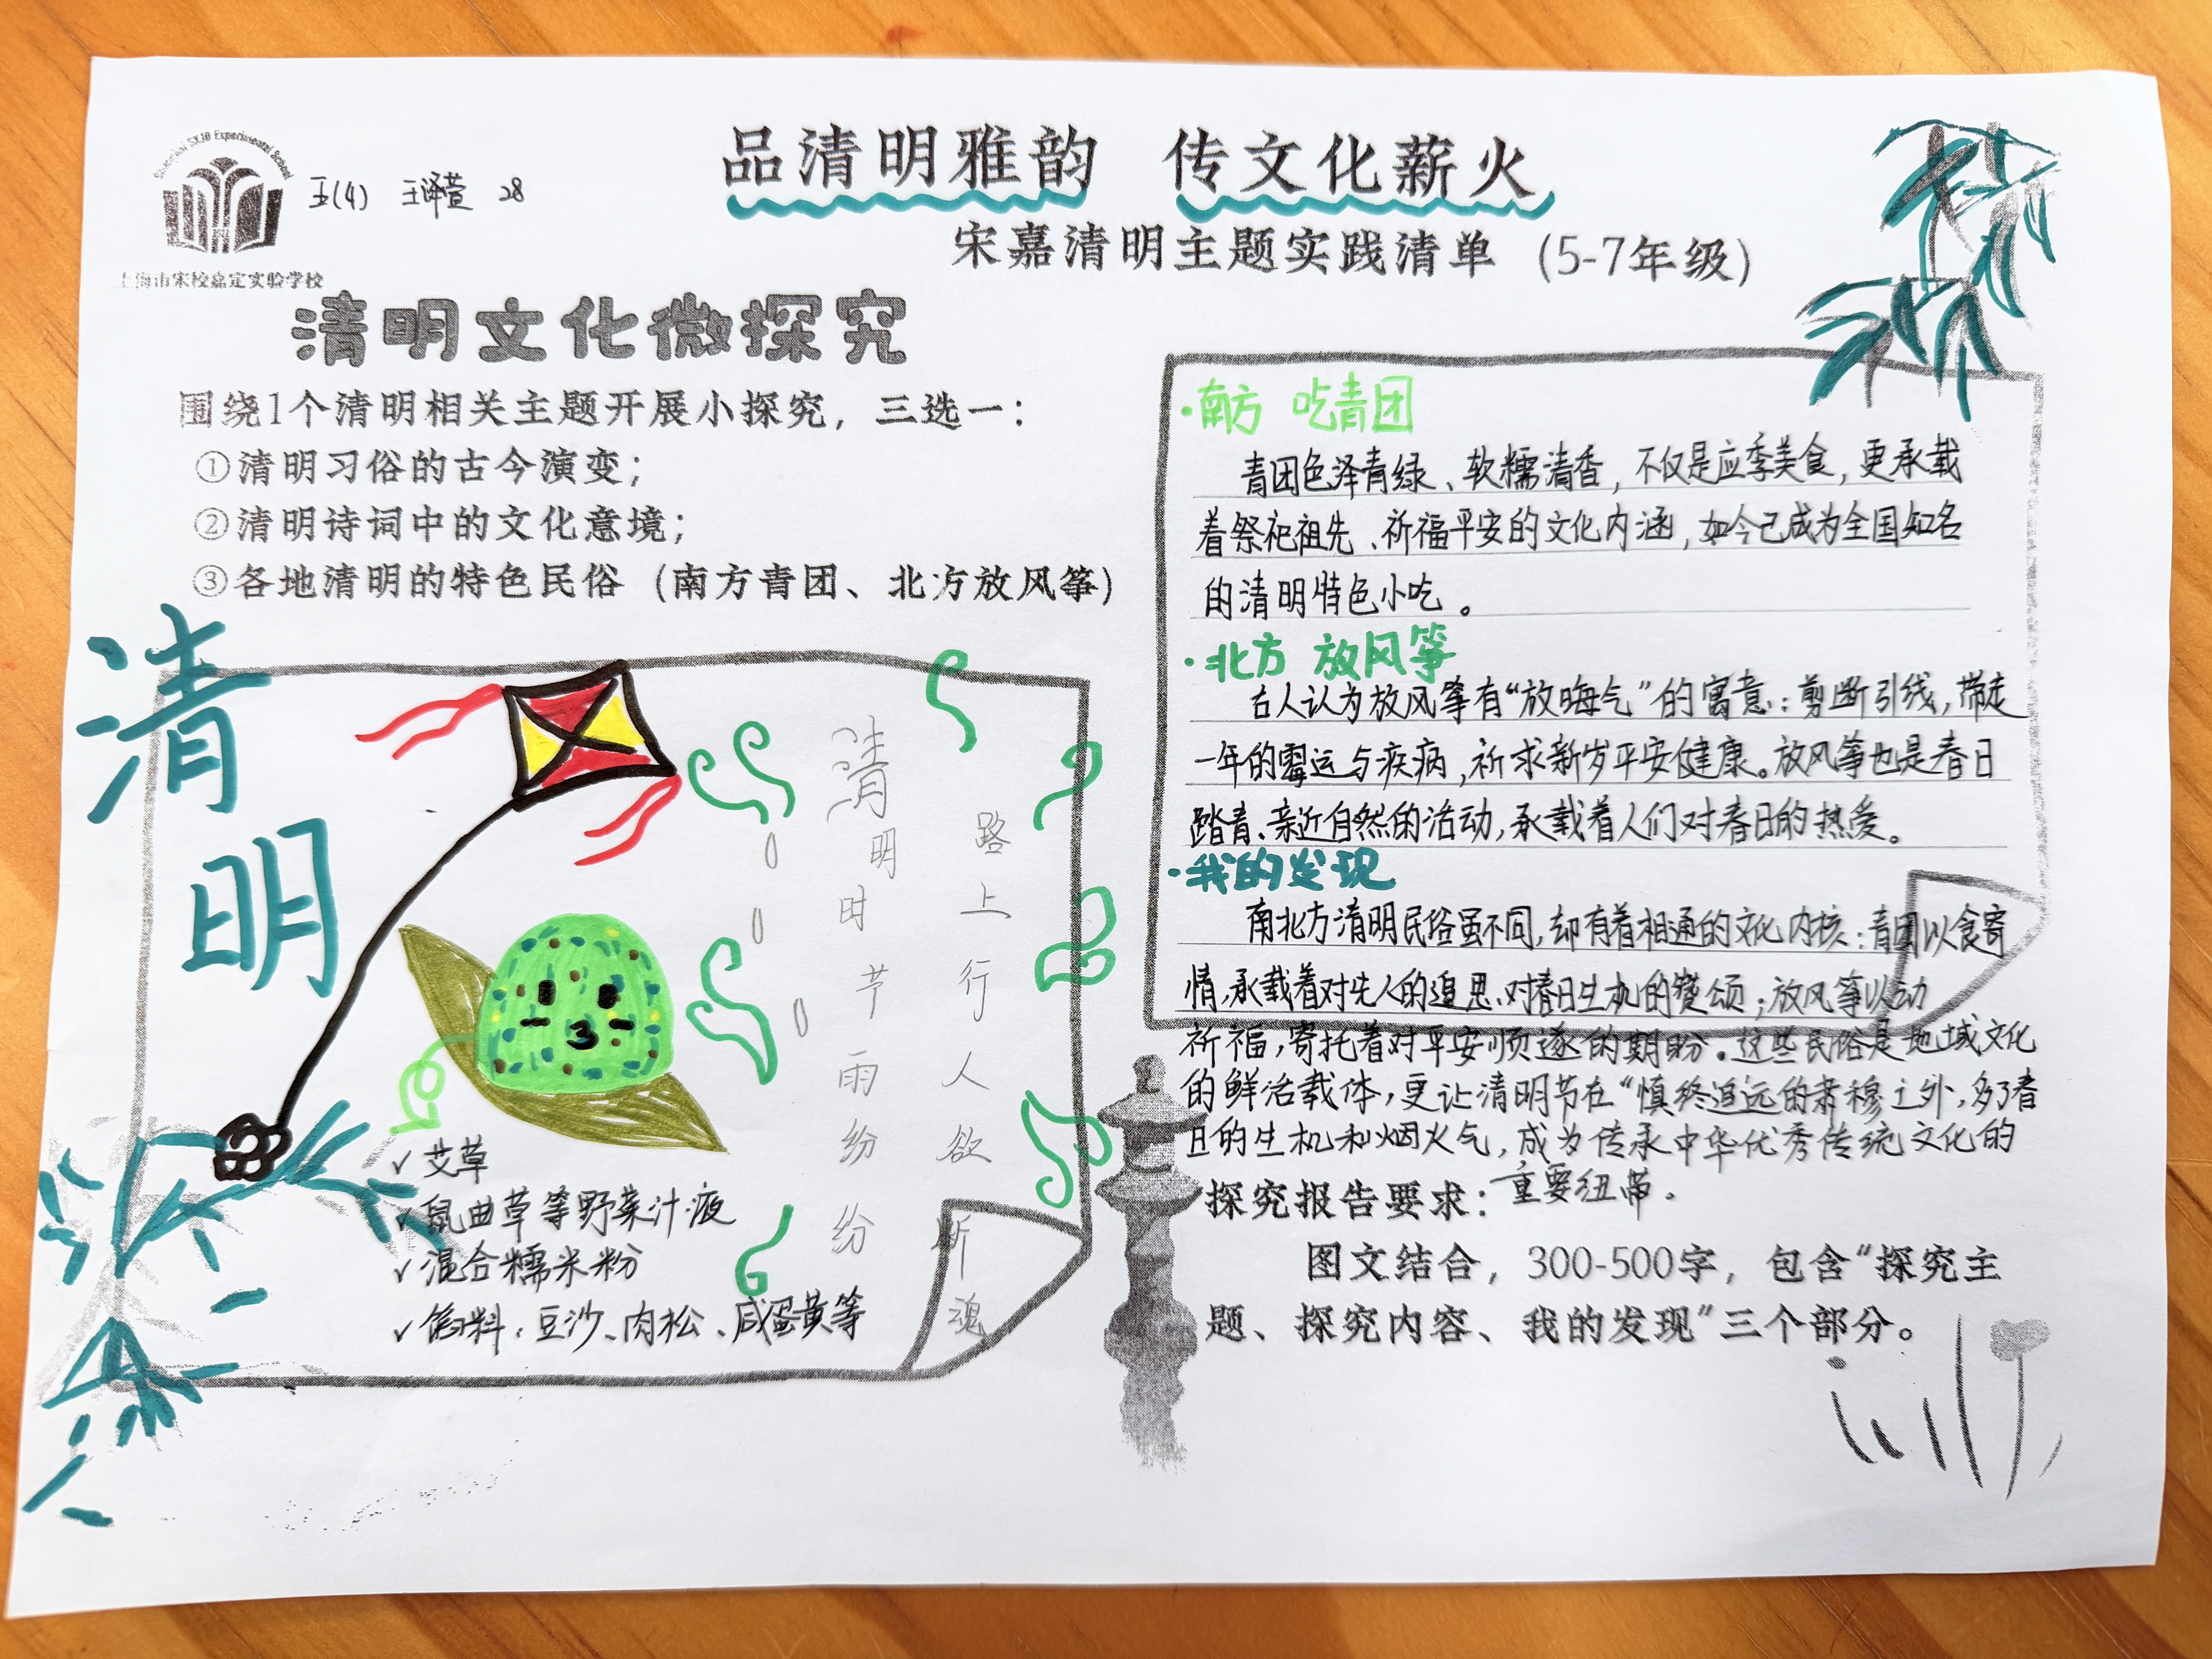 上海市宋校嘉定实验学校
五(4) 王译萱 28
品清明雅韵 传文化薪火
宋嘉清明主题实践清单 (5-7年级)
清明文化微探究
围绕1个清明相关主题开展小探究，三选一：
①清明习俗的古今演变；
②清明诗词中的文化意境；
③各地清明的特色民俗（南方青团、北方放风筝）
清明
清明时节雨纷纷
路上行人欲断魂
√ 艾草
√ 鼠曲草等野菜汁液
√ 混合糯米粉
√ 馅料：豆沙、肉松、咸蛋黄等
·南方 吃青团
青团色泽青绿、软糯清香，不仅是应季美食，更承载
着祭祀祖先、祈福平安的文化内涵，如今已成为全国知名
的清明特色小吃。
·北方 放风筝
古人认为放风筝有“放晦气”的寓意：剪断引线，带走
一年的霉运与疾病，祈求新岁平安健康。放风筝也是春日
踏青、亲近自然的活动，承载着人们对春日的热爱。
·我的发现
南北方清明民俗虽不同，却有着相通的文化内核：青团以食寄
情，承载着对先人的追思、对春日生机的赞颂；放风筝以动
祈福，寄托着对平安顺遂的期盼。这些民俗是地域文化
的鲜活载体，更让清明节在“慎终追远的肃穆之外，多了春
日的生机和烟火气，成为传承中华优秀传统文化的
重要纽带。
探究报告要求：
图文结合，300-500字，包含“探究主
题、探究内容、我的发现”三个部分。